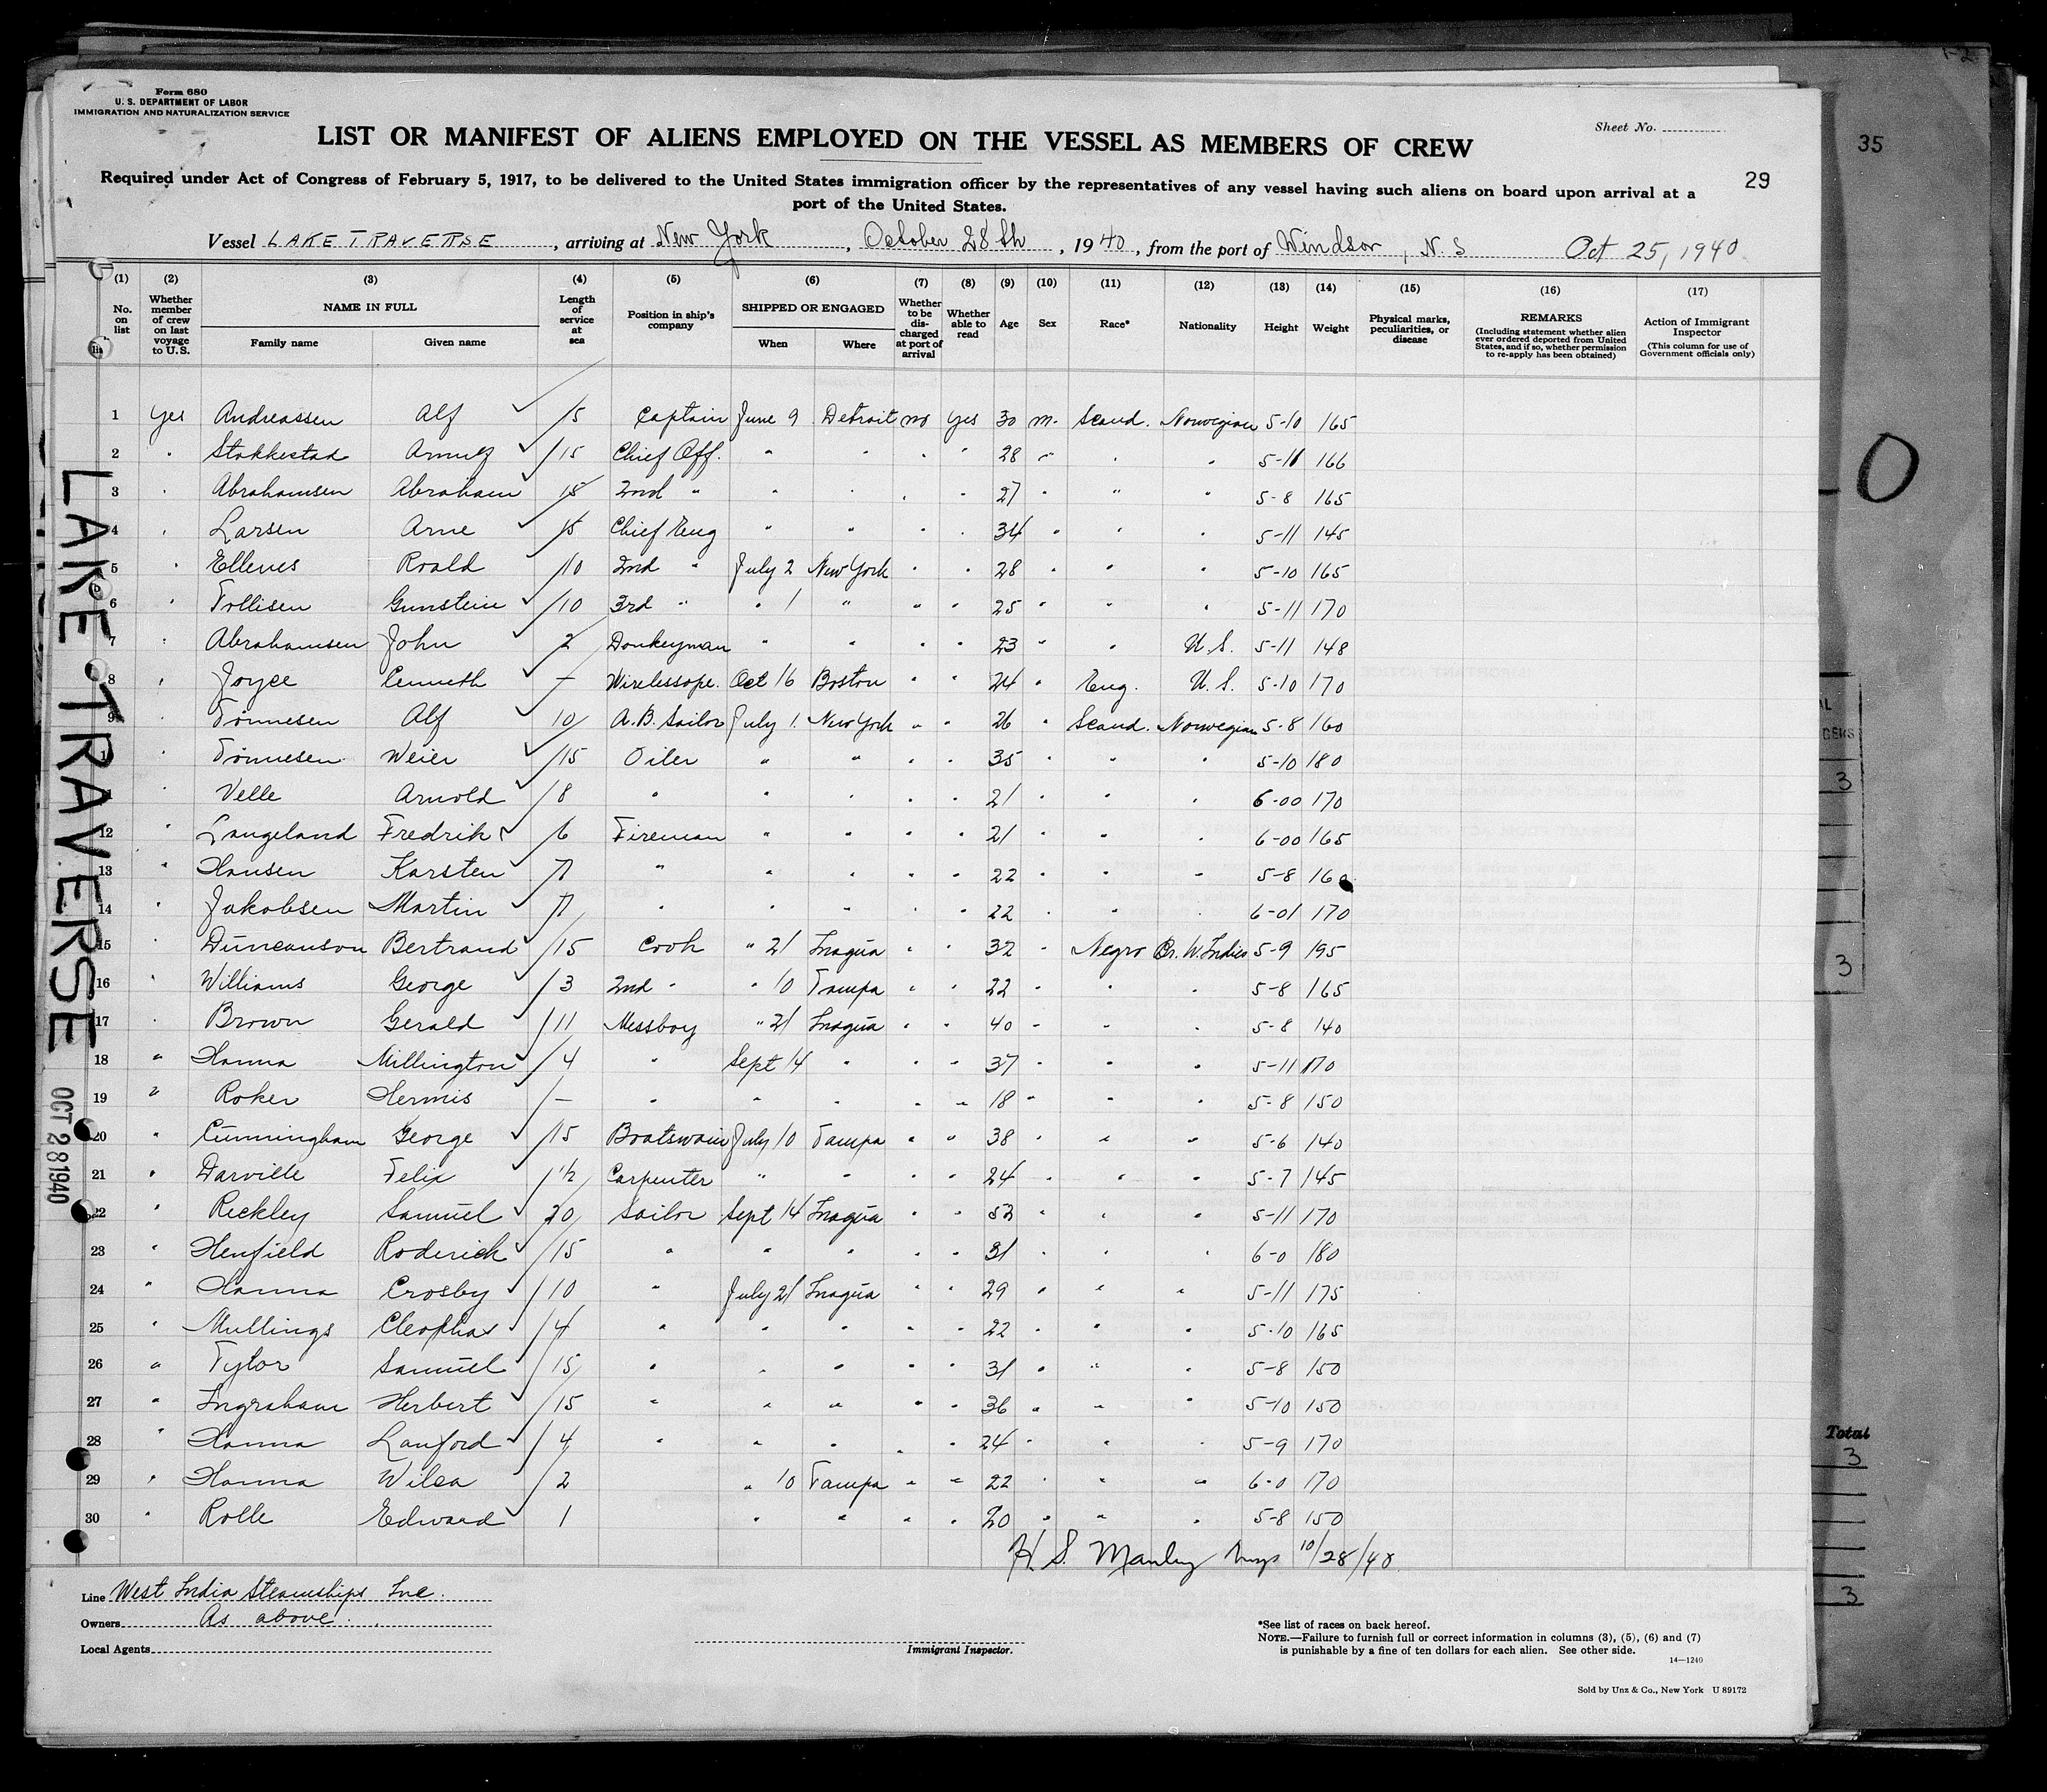 Form 680
U. S. DEPARTMENT OF LABOR
IMMIGRATION AND NATURALIZATION SERVICE
LIST OR MANIFEST OF ALIENS EMPLOYED ON THE VESSEL AS MEMBERS OF CREW
Sheet No.
35
Required under Act of Congress of February 5, 1917, to be delivered to the United States immigration officer by the representatives of any vessel having such aliens on board upon arrival at a
port of the United States.
29
Vessel LAKE TRAVERSE, arriving at New York, October 28th, 1940, from the port of Windsor, N.S Oct 25, 1940
(1) (2) (3) (4) (5) (6) (7) (8) (9) (10) (11) (12) (13) (14) (15) (16) (17)
No. on list
Whether member of crew on last voyage to U.S.
NAME IN FULL
Family name Given name
Length of service at sea
Position in ship's company
SHIPPED OR ENGAGED
When Where
Whether to be discharged at port of arrival
Whether able to read
Age
Sex
Race*
Nationality
Height
Weight
Physical marks, peculiarities, or disease
REMARKS
(Including statement whether alien ever ordered deported from United States, and if so, whether permission to re-apply has been obtained)
Action of Immigrant Inspector
(This column for use of Government officials only)
1 Yes Andreassen Alf ✓ 15 Captain June 9 Detroit no Yes 30 m. Scand. Norwegian 5-10 165
2 " Stokkestad ✓ 15 Chief Off. " " " " 28 " " " 5-11 166
3 " Abrahamsen Abraham ✓ 15 2nd " " " " " 27 " " " 5-8 165
4 " Larsen Arne ✓ 15 Chief Eng " " " " 34 " " " 5-11 145
5 " Ellenes Roald ✓ 10 2nd " July 2 New York " " 28 " " " 5-10 165
6 " Tollisen Gunstein ✓ 10 3rd " " 1 " " " 25 " " " 5-11 170
7 " Abrahamsen John ✓ 2 Donkeyman " " " " 23 " " U.S. 5-11 148
8 " Joyce Kenneth ✓ — Wirelessope. Oct 16 Boston " " 24 " Eng. U.S. 5-10 170
9 " Tönnesen Alf ✓ 10 A.B. Sailor July 1. New York " " 26 " Scand. Norwegian 5-8 160
1 " Tönnesen Weier ✓ 15 Oiler " " " " 35 " " " 5-10 180
" Velle Arnold ✓ 8 " " " " " 21 " " " 6-00 170
12 " Langeland Fredrik ✓ 6 Fireman " " " " 21 " " " 6-00 165
13 " Hansen Karsten ✓ 7 " " " " " 22 " " " 5-8 160
14 " Jakobsen Martin ✓ 7 " " " " " 22 " " " 6-01 170
15 " Duncanson Bertrand ✓ 15 Cook " 21 Inagua " " 32 " Negro Br. W. Indies 5-9 195
16 " Williams George ✓ 3 2nd " " 10 Tampa " " 22 " " " 5-8 165
17 " Brown Gerald ✓ 11 Messboy " 21 Inagua " " 40 " " " 5-8 140
18 " Hanna Millington ✓ 4 " Sept 14 " " " 37 " " " 5-11 170
19 " Roker Hermis — " " " " " 18 " " " 5-8 150
20 " Cunningham George ✓ 15 Boatswain July 10 Tampa " " 38 " " " 5-6 140
21 " Darville Felix ✓ 1½ Carpenter " " " " 24 " " " 5-7 145
22 " Rickley Samuel ✓ 20 Sailor Sept 14 Inagua " " 53 " " " 5-11 170
23 " Henfield Roderick ✓ 15 " " " " " 31 " " " 6-0 180
24 " Hanna Crosby ✓ 10 " July 21 Inagua " " 29 " " " 5-11 175
25 " Mullings Cleophas ✓ 4 " " " " " 22 " " " 5-10 165
26 " Tylor Samuel ✓ 15 " " " " " 31 " " " 5-8 150
27 " Ingraham Herbert ✓ 15 " " " " " 36 " " " 5-10 150
28 " Hanna Lanford ✓ 4 " " " " " 24 " " " 5-9 170
29 " Hanna ✓ 2 " 10 Tampa " " 22 " " " 6-0 170
30 " Rolle Edward ✓ 1 " " " " 20 " " " 5-8 150
H. S. Manley 10/28/40
LAKE TRAVERSE
OCT 28 1940
Line West India Steamships Inc.
Owners As above.
Local Agents
Immigrant Inspector.
*See list of races on back hereof.
NOTE.—Failure to furnish full or correct information in columns (3), (5), (6) and (7)
is punishable by a fine of ten dollars for each alien. See other side.
14—1240
Sold by Unz & Co., New York U 89172
0
3
3
Total
3
3